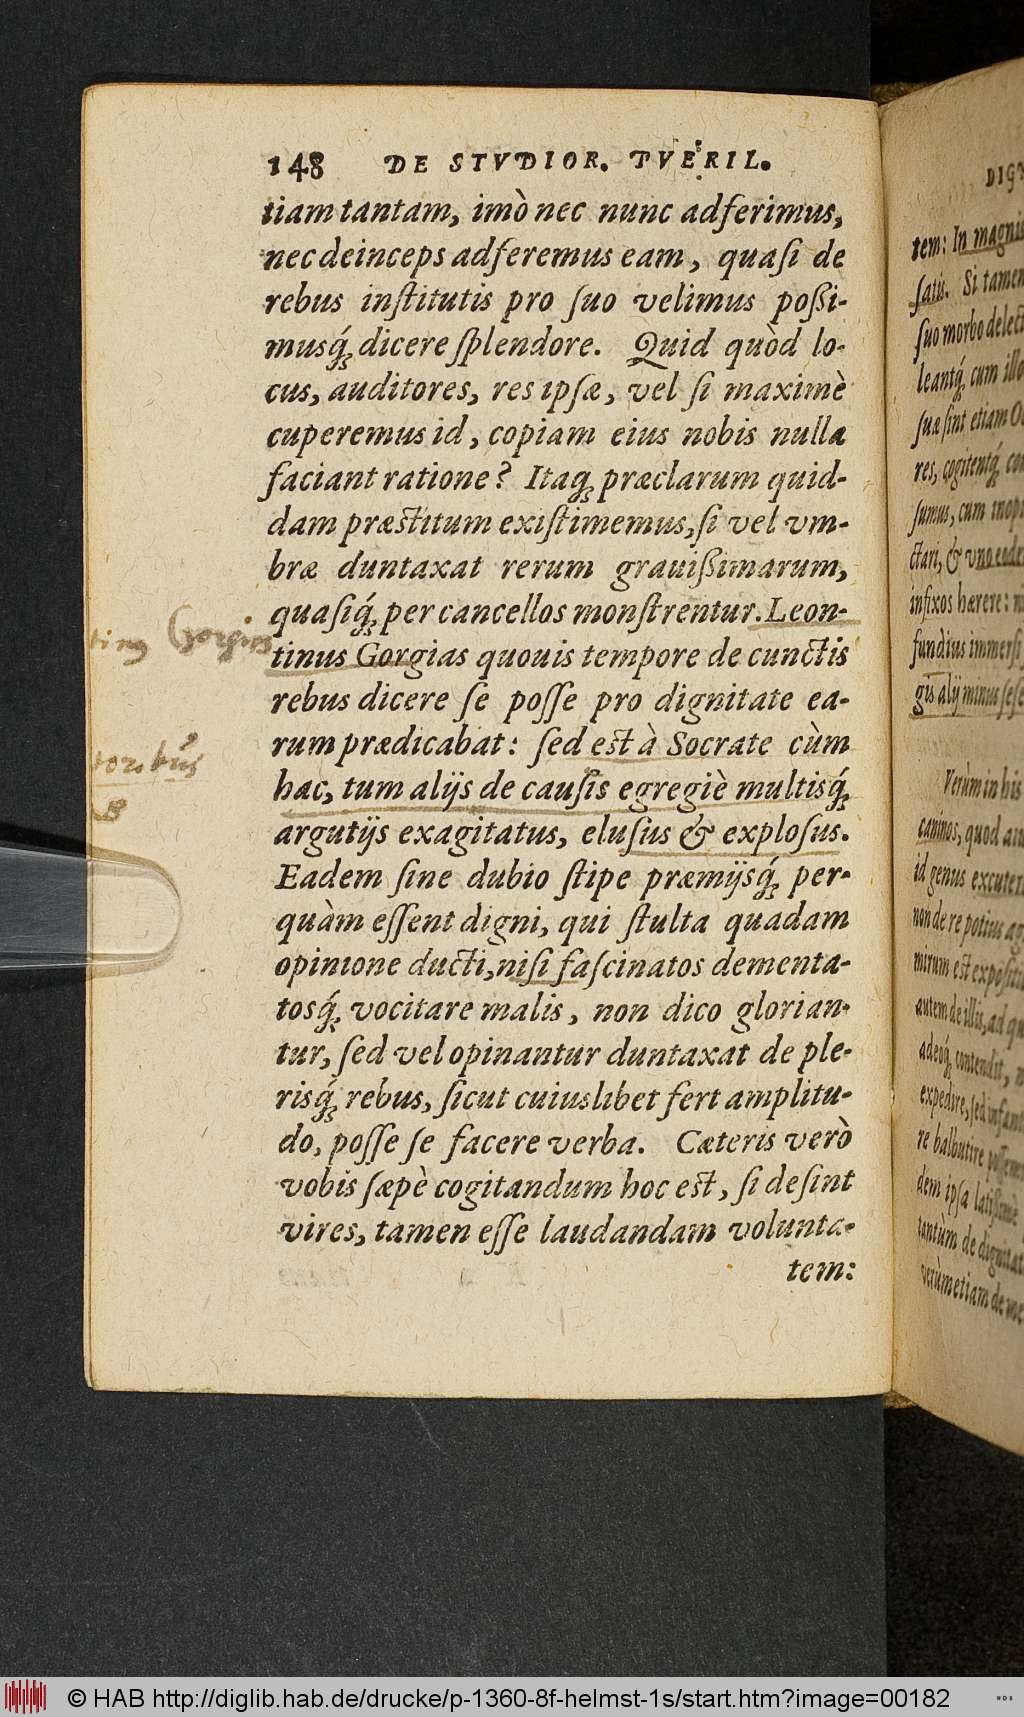 148 DE STVDIOR. PVERIL.
tiam tantam, imò nec nunc adferimus,
nec deinceps adferemus eam, quaſi de
rebus inſtitutis pro ſuo velimus poßi-
musq́ꝫ dicere ſplendore. Quid quòd lo-
cus, auditores, res ipſæ, vel ſi maximè
cuperemus id, copiam eius nobis nulla
faciant ratione? Itaqꝫ præclarum quid-
dam præſtitum exiſtimemus, ſi vel vm-
bræ duntaxat rerum grauißimarum,
quaſiq́ꝫ per cancellos monſtrentur. Leon-
tinus Gorgias quouis tempore de cunctis
rebus dicere ſe poſſe pro dignitate ea-
rum prædicabat: ſed eſt à Socrate cùm
hac, tum alijs de cauſis egregiè multisq́ꝫ
argutijs exagitatus, eluſus & exploſus.
Eadem ſine dubio ſtipe præmijsq́ꝫ per-
quàm eſſent digni, qui ſtulta quadam
opinione ducti, niſi faſcinatos dementa-
tosq́ꝫ vocitare malis, non dico glorian-
tur, ſed vel opinantur duntaxat de ple-
risq́ꝫ rebus, ſicut cuiuslibet fert amplitu-
do, poſſe ſe facere verba. Cæteris verò
vobis ſæpè cogitandum hoc eſt, ſi deſint
vires, tamen eſſe laudandam volunta-
tem:
Gorgias
tem: In magnis
ſatis. Si tamen
ſuo morbo delect
leantq́ꝫ cum illo
ſuæ ſint etiam
res, cogitentq́ꝫ
ſumus, cum inop
ctari, & vno eodem
infixos hærere:
fundius immerſi
gis alij minus ſeſe
Verùm in his
caninos, quod
id genus excuter
non de re potius
mirum eſt expoſit
autem de illis, ad
adeoq́ꝫ contendit,
expedire, ſed infant
re balbutire poſſem
dem ipſa latißimè
tantum de dignitat
verùm etiam de
© HAB http://diglib.hab.de/drucke/p-1360-8f-helmst-1s/start.htm?image=00182